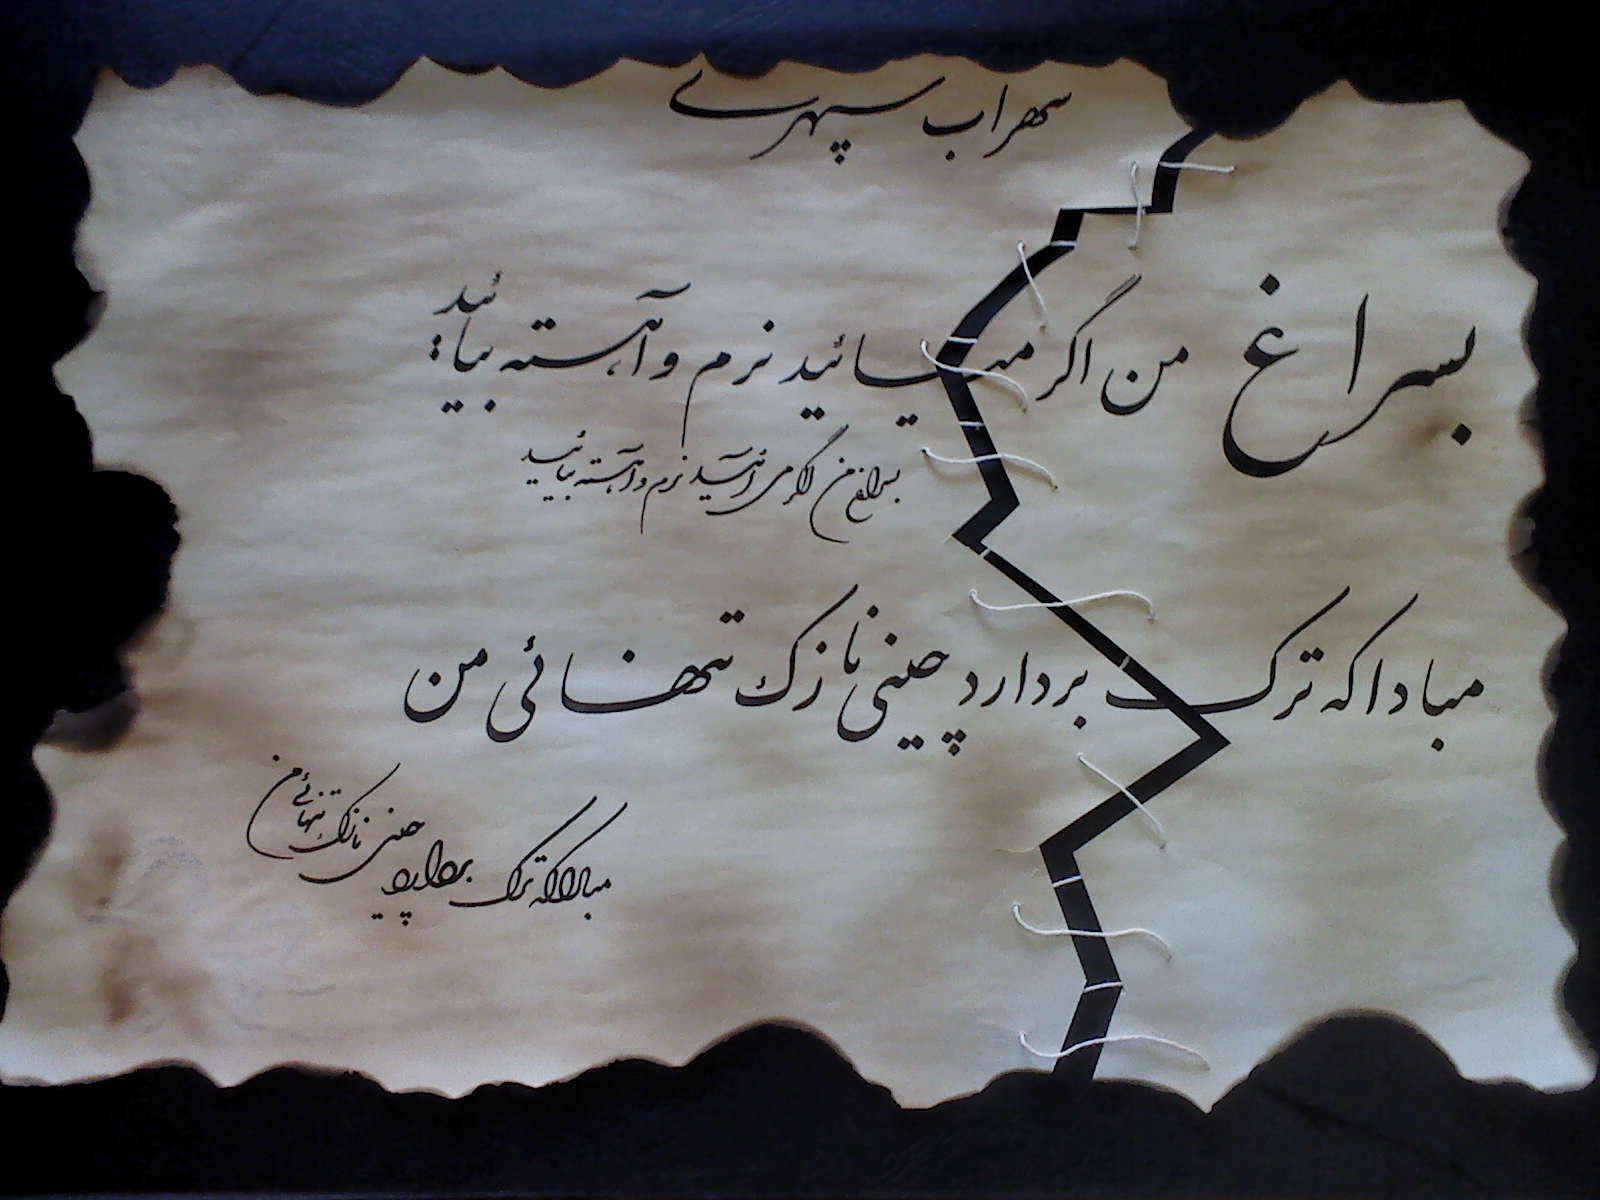 سهراب سپهری
بسراغ من اگر میائید نرم و آهسته بیائید؛
بسراغ من اگر می آئید نرم و آهسته بیائید
مبادا که ترک بردارد چینی نازک تنهائی من
مبادا که ترک بردارد چینی نازک تنهائی من